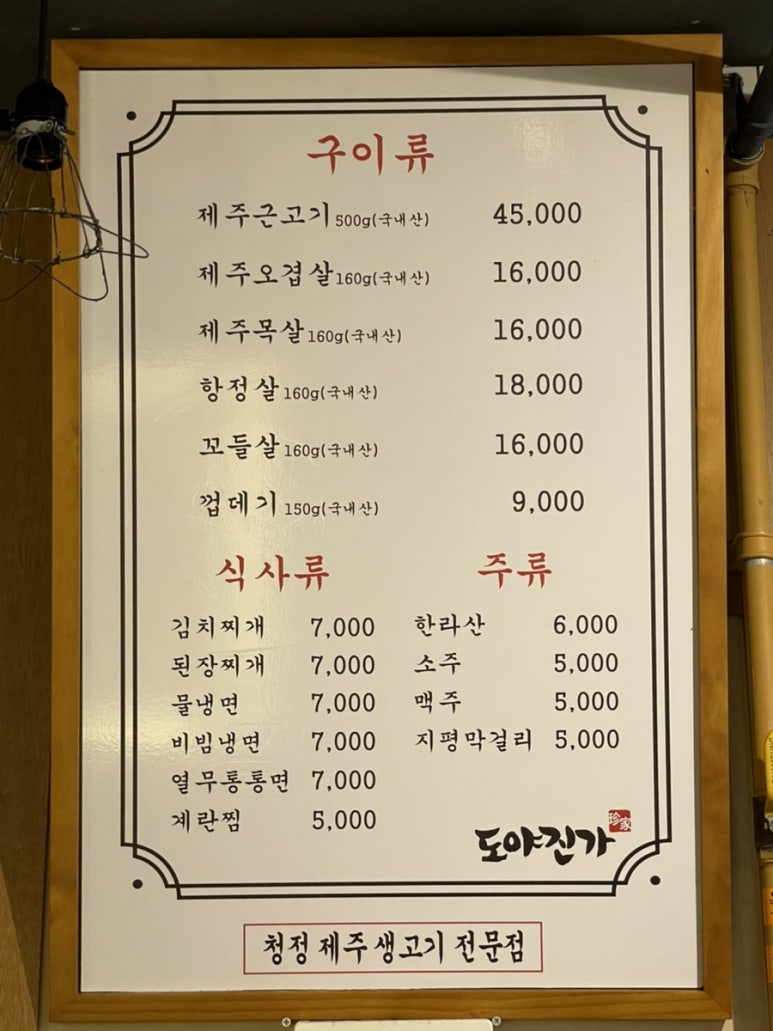 구이류
제주근고기 500g(국내산) 45,000
제주오겹살 160g(국내산) 16,000
제주목살 160g(국내산) 16,000
항정살 160g(국내산) 18,000
꼬들살 160g(국내산) 16,000
껍데기 150g(국내산) 9,000
식사류
김치찌개 7,000
된장찌개 7,000
물냉면 7,000
비빔냉면 7,000
열무통통면 7,000
계란찜 5,000
주류
한라산 6,000
소주 5,000
맥주 5,000
지평막걸리 5,000
도야진가 珍家
청정 제주 생고기 전문점